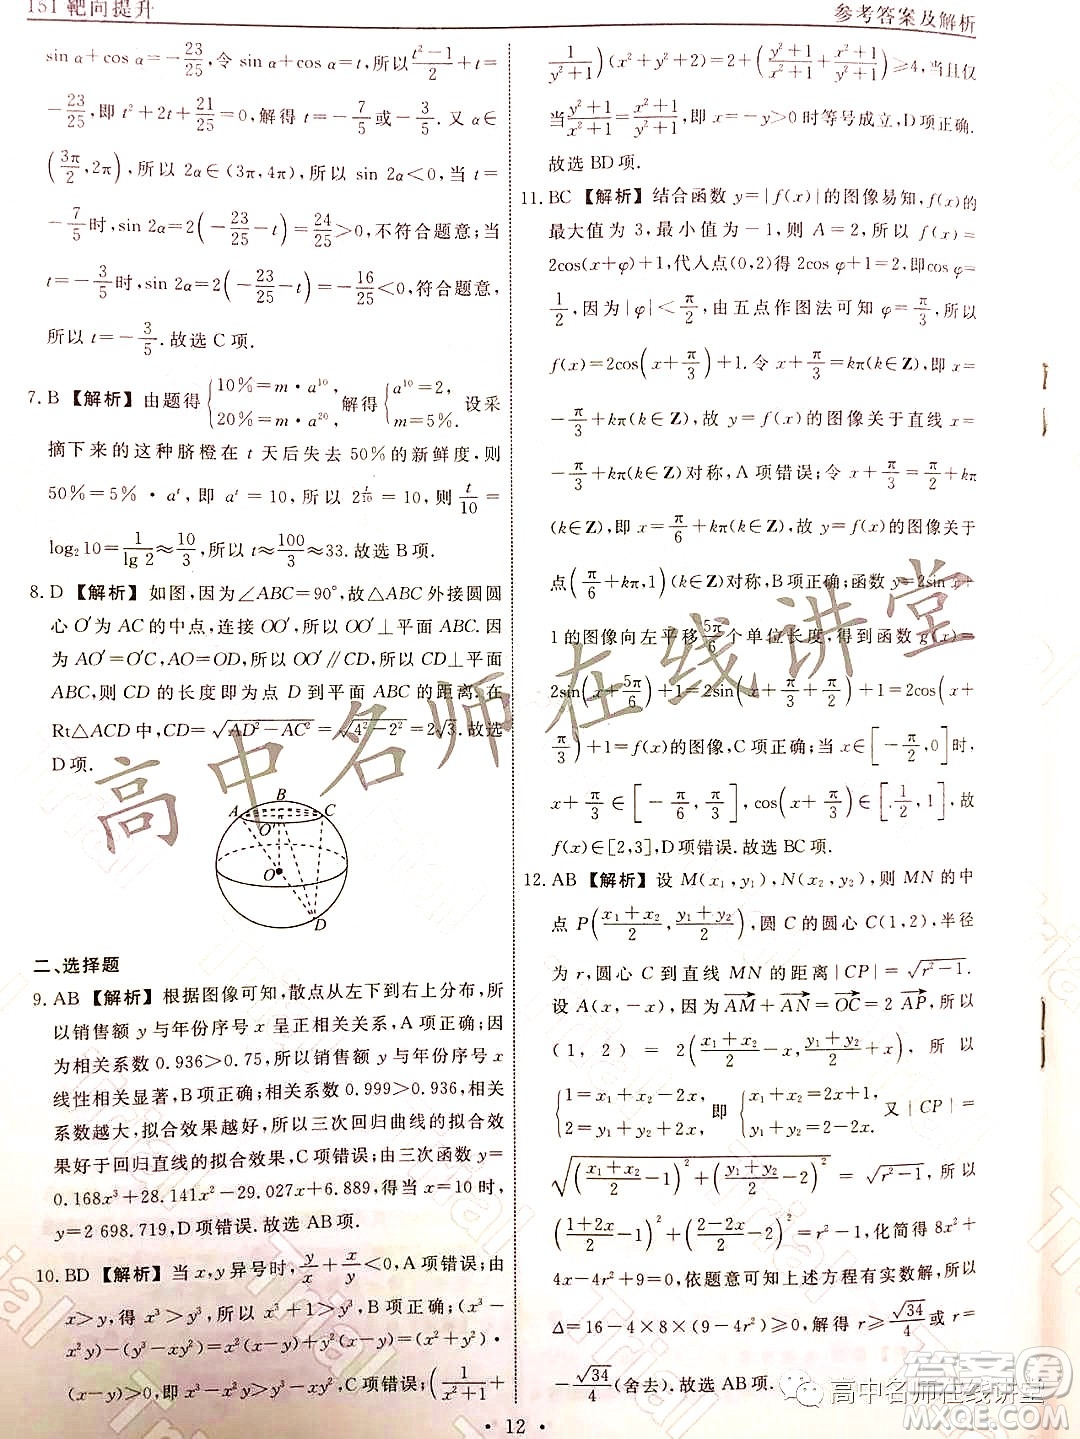 151 靶向提升
参考答案及解析
sin α+cos α=-23/25,令 sin α+cos α=t,所以(t²-1)/2+t=
-23/25,即 t²+2t+21/25=0,解得 t=-7/5或-3/5.又 α∈
(3π/2,2π),所以 2α∈(3π,4π),所以 sin 2α<0,当 t=
-7/5时,sin 2α=2(-23/25-t)=24/25>0,不符合题意;当
t=-3/5时,sin 2α=2(-23/25-t)=-16/25<0,符合题意,
所以 t=-3/5.故选 C 项.
7. B 【解析】由题得{10%=m·a¹⁰, 20%=m·a²⁰, 解得{a¹⁰=2, m=5%. 设采
摘下来的这种脐橙在 t 天后失去 50%的新鲜度,则
50%=5%·aᵗ,即 aᵗ=10,所以 2^(t/10)=10,则 t/10=
log₂10=1/lg 2≈10/3,所以 t≈100/3≈33.故选 B 项.
8. D 【解析】如图,因为∠ABC=90°,故△ABC 外接圆圆
心 O′为 AC 的中点,连接 OO′,所以 OO′⊥平面 ABC.因
为 AO′=O′C,AO=OD,所以 OO′∥CD,所以 CD⊥平面
ABC,则 CD 的长度即为点 D 到平面 ABC 的距离.在
Rt△ACD 中,CD=√(AD²-AC²)=√(4²-2²)=2√3.故选
D 项.
B
A
C
O′
O
D
二、选择题
9. AB 【解析】根据图像可知,散点从左下到右上分布,所
以销售额 y 与年份序号 x 呈正相关关系,A 项正确;因
为相关系数 0.936>0.75,所以销售额 y 与年份序号 x
线性相关显著,B 项正确;相关系数 0.999>0.936,相关
系数越大,拟合效果越好,所以三次回归曲线的拟合效
果好于回归直线的拟合效果,C 项错误;由三次函数 y=
0.168x³+28.141x²-29.027x+6.889,得当 x=10 时,
y=2 698.719,D 项错误.故选 AB 项.
10. BD 【解析】当 x,y 异号时,y/x+x/y<0,A 项错误;由
x>y,得 x³>y³,所以 x³+1>y³,B 项正确;(x²+y²)·
(x-y)-(x²-y²)(x+y)=(x-y)[(x²+y²)-
(x+y)²]=-2xy(x-y),C 项错误;(1/(x²+1)+
1/(y²+1))(x²+y²+2)=2+((y²+1)/(x²+1)+(x²+1)/(y²+1))≥4,当且仅
当(y²+1)/(x²+1)=(x²+1)/(y²+1),即 x=-y>0 时等号成立,D 项正确.
故选 BD 项.
11. BC 【解析】结合函数 y=|f(x)|的图像易知,f(x)的
最大值为 3,最小值为-1,则 A=2,所以 f(x)=
2cos(x+φ)+1,代入点(0,2),得 2cos φ+1=2,即cos φ=
1/2,因为|φ|<π/2,由五点作图法可知 φ=π/3,所以
f(x)=2cos(x+π/3)+1.令 x+π/3=kπ(k∈Z),即 x=
-π/3+kπ(k∈Z),故 y=f(x)的图像关于直线 x=
-π/3+kπ(k∈Z)对称,A 项错误;令 x+π/3=π/2+kπ
(k∈Z),即 x=π/6+kπ(k∈Z),故 y=f(x)的图像关于
点(π/6+kπ,1)(k∈Z)对称,B 项正确;函数 y=2sin x+
1 的图像向左平移5π/6个单位长度,得到函数 g(x)=
2sin(x+5π/6)+1=2sin(x+π/3+π/2)+1=2cos(x+
π/3)+1=f(x)的图像,C 项正确;当 x∈[-π/2,0]时,
x+π/3∈[-π/6,π/3],cos(x+π/3)∈[1/2,1],故
f(x)∈[2,3],D 项错误.故选 BC 项.
12. AB 【解析】设 M(x₁,y₁),N(x₂,y₂),则 MN 的中
点 P((x₁+x₂)/2,(y₁+y₂)/2),圆 C 的圆心 C(1,2),半径
为 r,圆心 C 到直线 MN 的距离|CP|=√(r²-1).
设 A(x,-x),因为 AM+AN=OC=2 AP,所以
(1,2)=2((x₁+x₂)/2-x,(y₁+y₂)/2+x),所以
{1=x₁+x₂-2x, 2=y₁+y₂+2x, 即{x₁+x₂=1+2x, y₁+y₂=2-2x. 又|CP|=
√(((x₁+x₂)/2-1)²+((y₁+y₂)/2-2)²)=√(r²-1),所以
((1+2x)/2-1)²+((2-2x)/2-2)²=r²-1,化简得 8x²+
4x+9-4r²=0,依题意可知上述方程有实数解,所以
Δ=16-4×8×(9-4r²)≥0,解得 r≥√34/4或 r≤
-√34/4(舍去).故选 AB 项.
·12·
高中名师在线讲堂
Trial
高中名师在线讲堂
答案圈
MXQE.COM